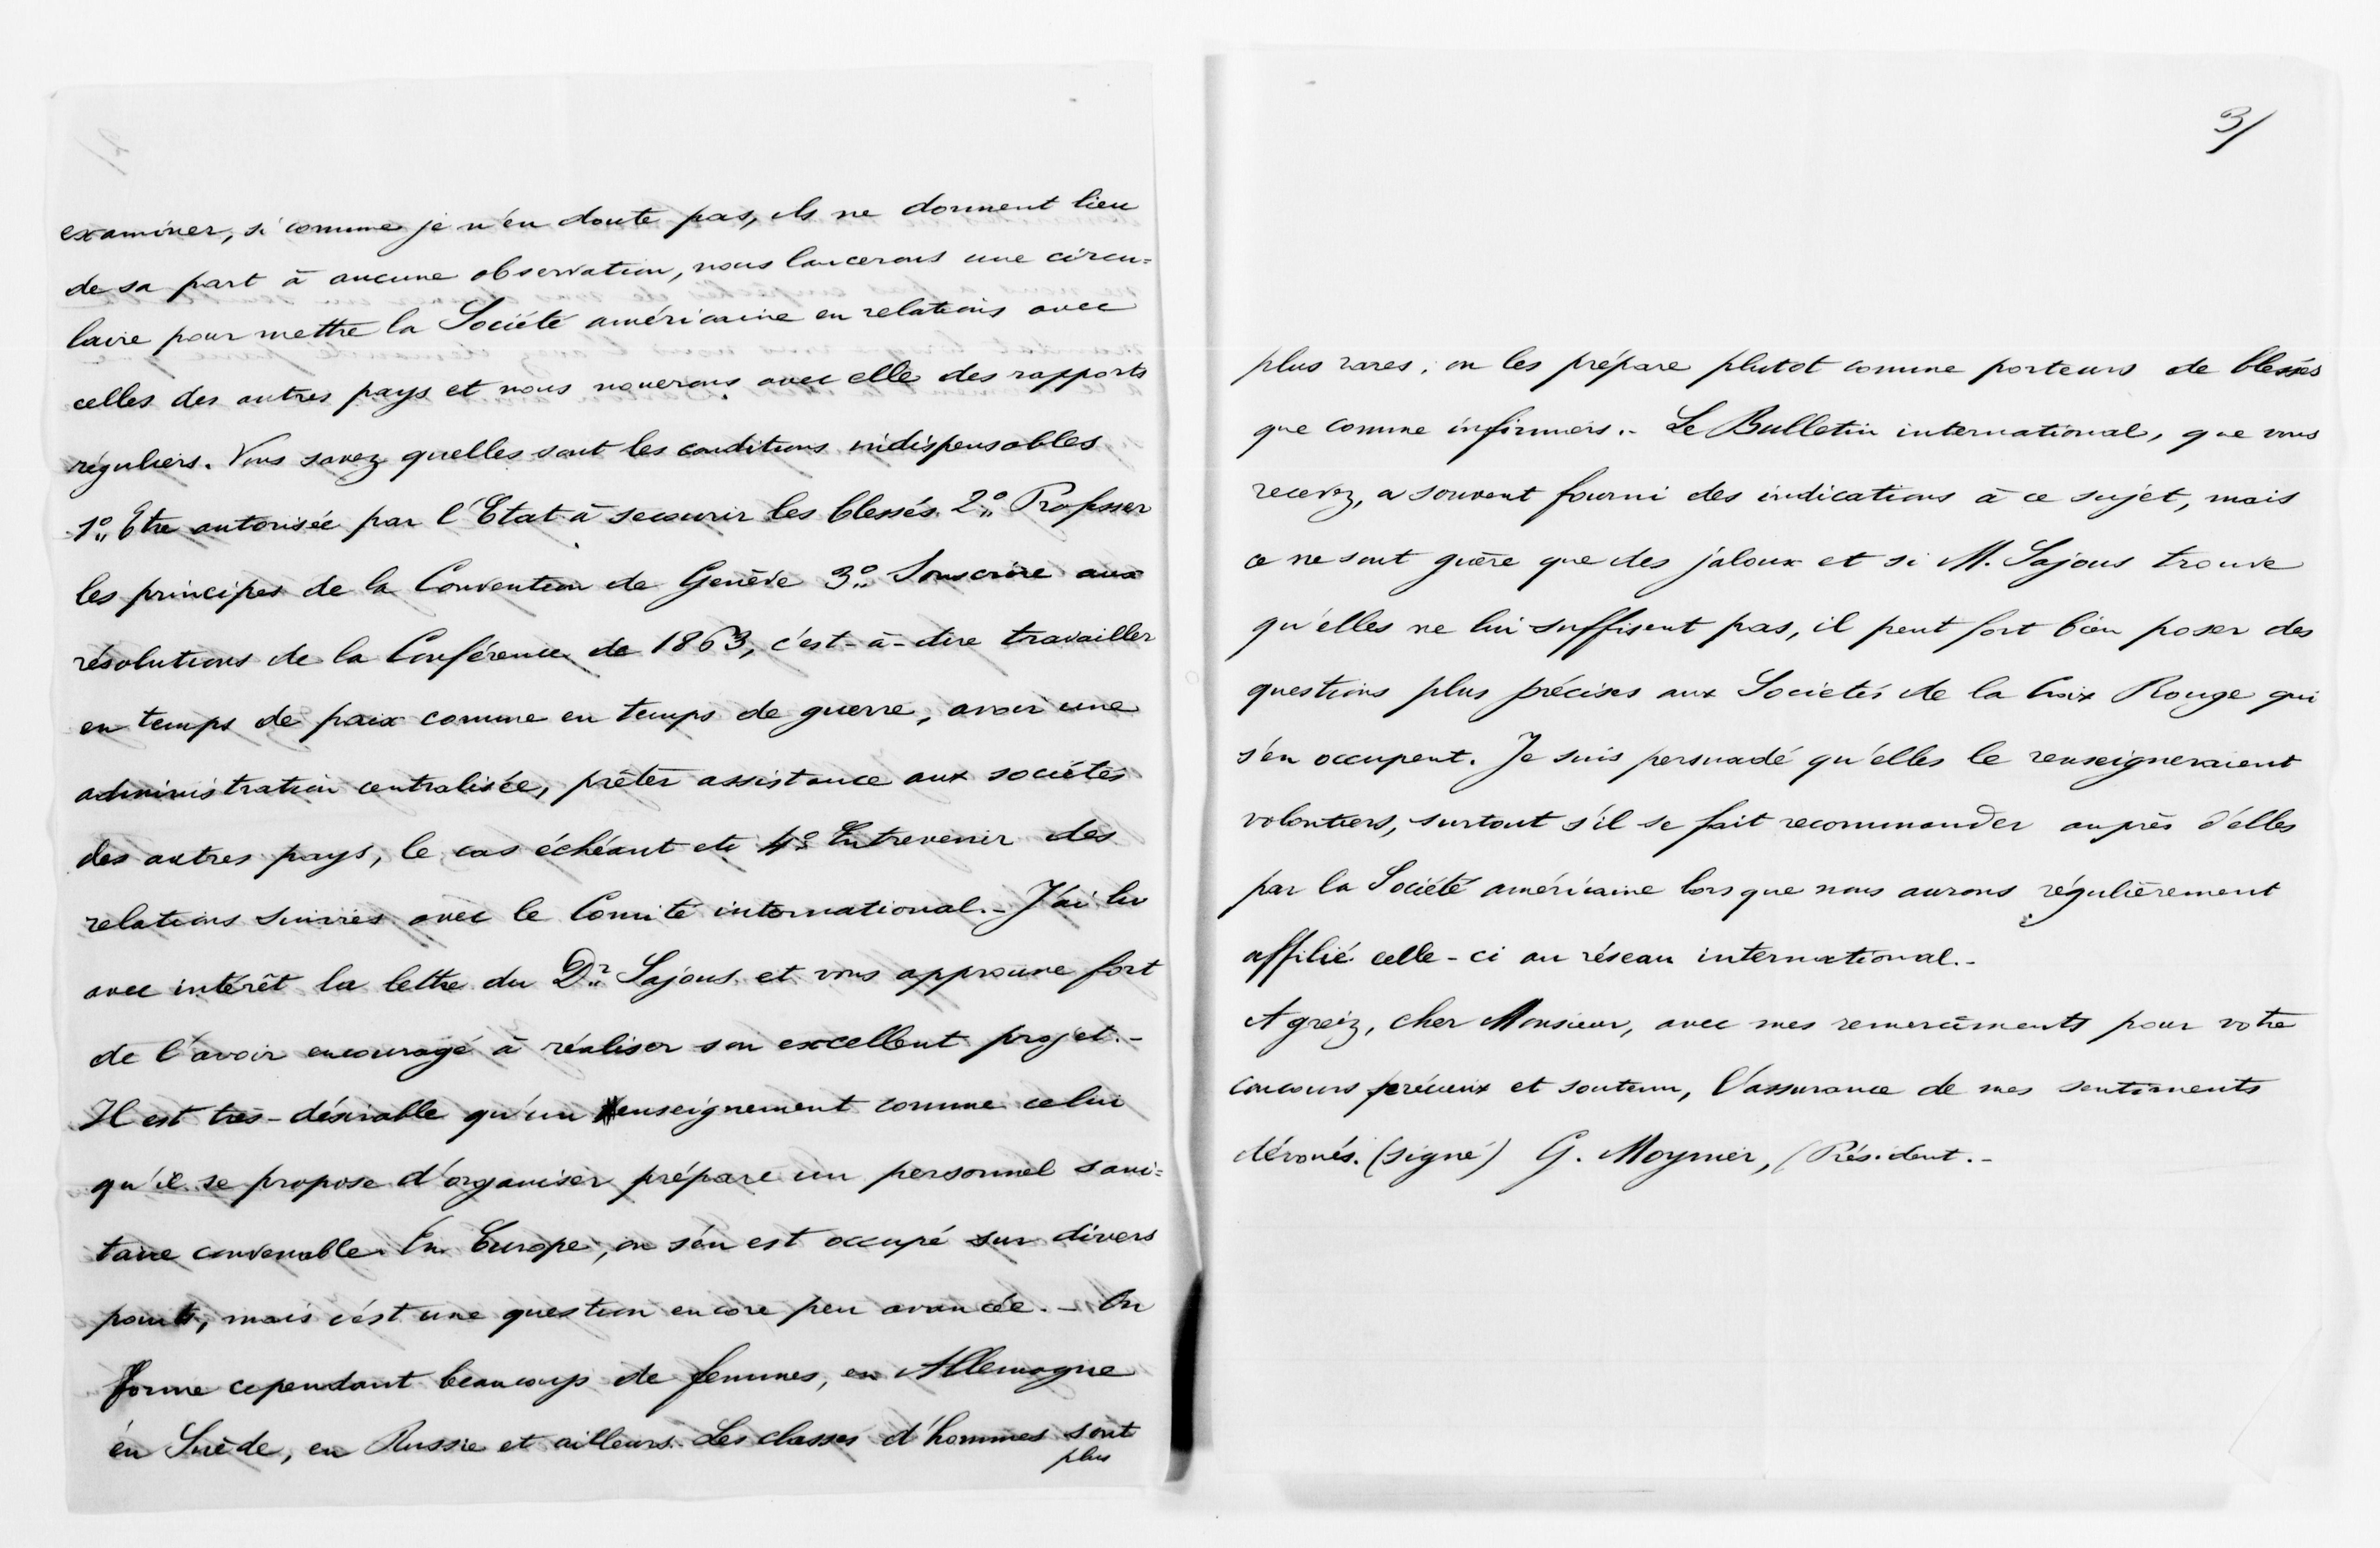 examiner, si comme je n'en doute pas, ils ne donnent lieu
de sa part à aucune observation, nous lancerons une circu=
laire pour mettre la Société américaine en relations avec
celles des autres pays et nous nouerons avec elle des rapports
réguliers. Vous savez quelles sont les conditions indispensables
1° Etre autorisée par l'Etat à secourir les blessés 2° Professer
les principes de la Convention de Genève 3° Souscrire aux
résolutions de la Conférence de 1863, c'est-à-dire travailler
en temps de paix comme en temps de guerre, avoir une
administration centralisée, prêter assistance aux sociétés
des autres pays, le cas échéant etc 4° Entrevenir des
relations suivies avec le Comité international.- J'ai lu
avec intérêt la lettre du Dr Sajous et vous approuve fort
de l'avoir encouragé à réaliser son excellent projet.-
Il est tres-désirable qu'un enseignement comme celui
qu'il se propose d'organiser prépare un personnel sani=
taire convenable. En Europe, on s'en est occupé sur divers
points, mais c'est une question encore peu avancée. - On
forme cependant beaucoup de femmes, en Allemagne
en Suède, en Russie et ailleurs. Les classes d'hommes sont
plus
3/
plus rares; on les prépare plutot comme porteurs de blessés
que comme infirmiers.- Le Bulletin international, que vous
recevez, a souvent fourni des indications à ce sujet, mais
ce ne sont guère que des jaloux et si M. Sajous trouve
qu'elles ne lui suffisent pas, il peut fort bien poser des
questions plus précises aux Societés de la Croix Rouge qui
s'en occupent. Je suis persuadé qu'elles le renseigneraient
volontiers, surtout s'il se fait recommander auprès d'elles
par la Société américaine lorsque nous aurons régulièrement
affilié celle-ci au réseau international.-
Agreez, cher Monsieur, avec mes remercîments pour votre
concours précieux et soutenu, l'assurance de mes sentiments
dévoués. (signé) G. Moynier, Président.-